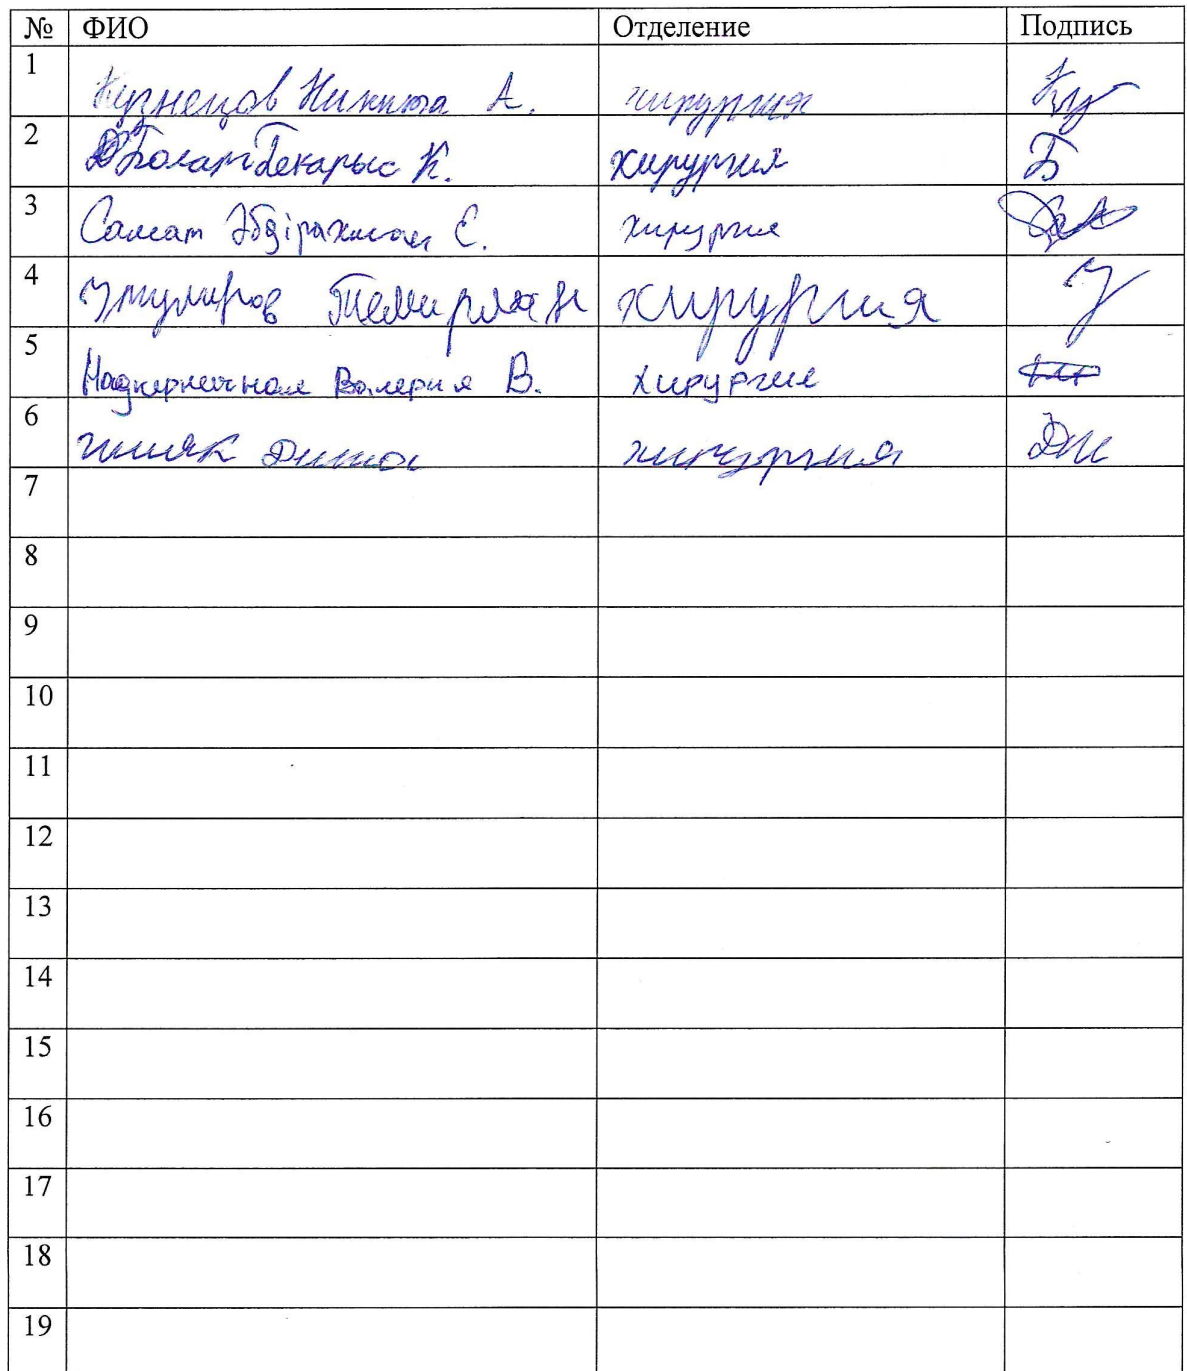 № ФИО Отделение Подпись
1 Кузнецов Никита А. хирургия
2 Болат Бекарыс К. хирургия Б
3 Самат Әбдірахман Е. хирургия
4 Темирлан хирургия У
5 Валерия В. хирургия
6 Дима хирургия
7
8
9
10
11
12
13
14
15
16
17
18
19